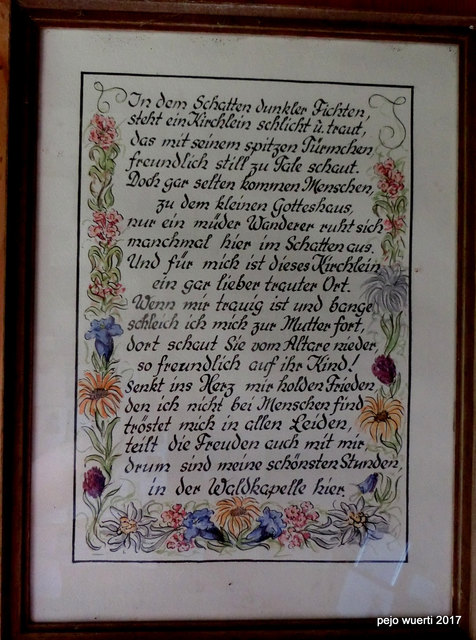 In dem Schatten dunkler Fichten,
steht ein Kirchlein schlicht u. traut,
das mit seinem spitzen Türmchen
freundlich still zu Tale schaut.
Doch gar selten kommen Menschen,
zu dem kleinen Gotteshaus,
nur ein müder Wanderer ruht sich
manchmal hier im Schatten aus.
Und für mich ist dieses Kirchlein
ein gar lieber trauter Ort.
Wenn mir traurig ist und bange
schleich ich mich zur Mutter fort,
dort schaut Sie vom Altare nieder,
so freundlich auf ihr Kind!
Senkt ins Herz mir holden Frieden,
den ich nicht bei Menschen find
tröstet mich in allen Leiden,
teilt die Freuden auch mit mir,
drum sind meine schönsten Stunden,
in der Waldkapelle hier.
pejo wuerti 2017